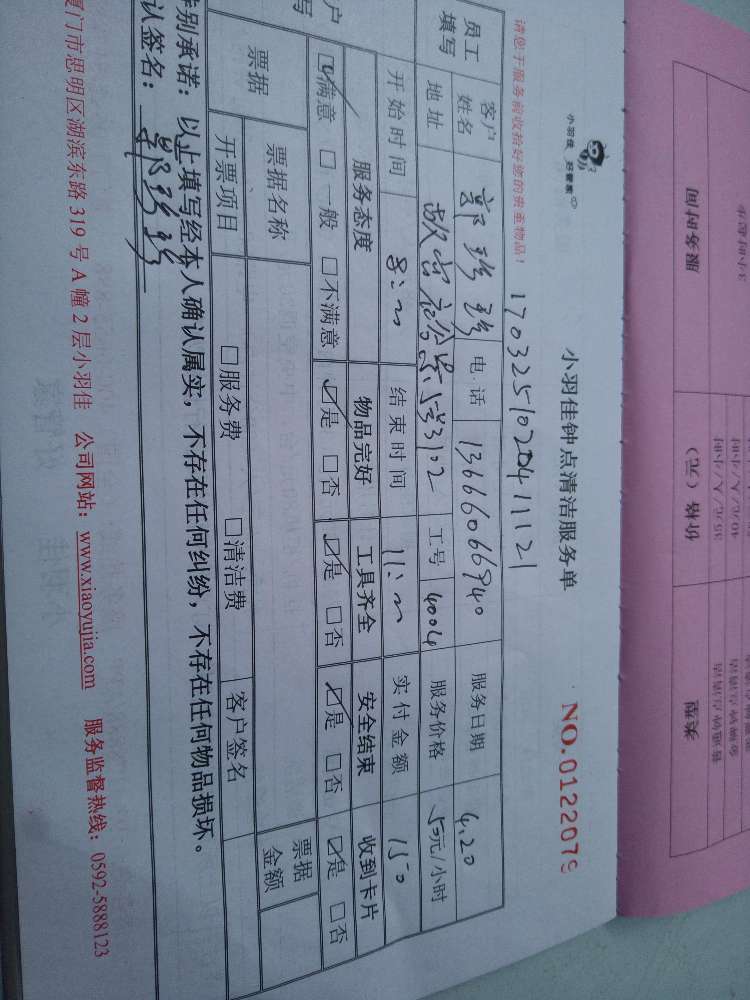 小羽佳 好管家
小羽佳钟点清洁服务单
NO.0122079
请您于服务前收拾好您的贵重物品!
1703251020411121
员工填写
客户姓名 电话 13666066940 服务日期 4.20
地址 5号3102 工号 4004 服务价格 50元/小时
开始时间 8:00 结束时间 11:00 实付金额 150
户
写
服务态度 物品完好 工具齐全 安全结束 收到卡片
☑满意 □一般 □不满意 ☑是 □否 ☑是 □否 ☑是 □否 ☑是 □否
票据
票据名称 票据金额
开票项目 □服务费 □清洁费 客户签名
特别承诺:以上填写经本人确认属实,不存在任何纠纷,不存在任何物品损坏。
认签名:
厦门市思明区湖滨东路319号A幢2层小羽佳 公司网站:www.xiaoyujia.com 服务监督热线:0592-5888123
服务时间
价格(元)